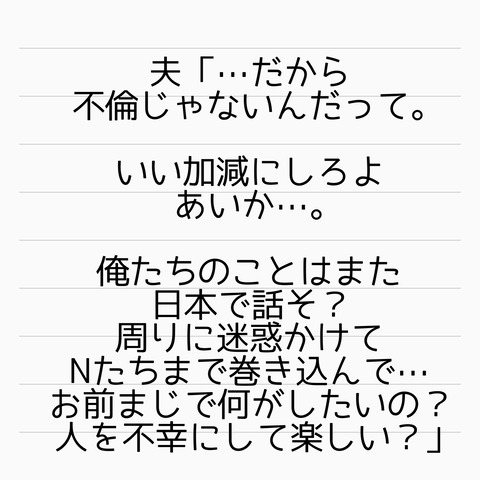 夫「…だから
不倫じゃないんだって。
いい加減にしろよ
あいか…。
俺たちのことはまた
日本で話そ？
周りに迷惑かけて
Nたちまで巻き込んで…
お前まじで何がしたいの？
人を不幸にして楽しい？」